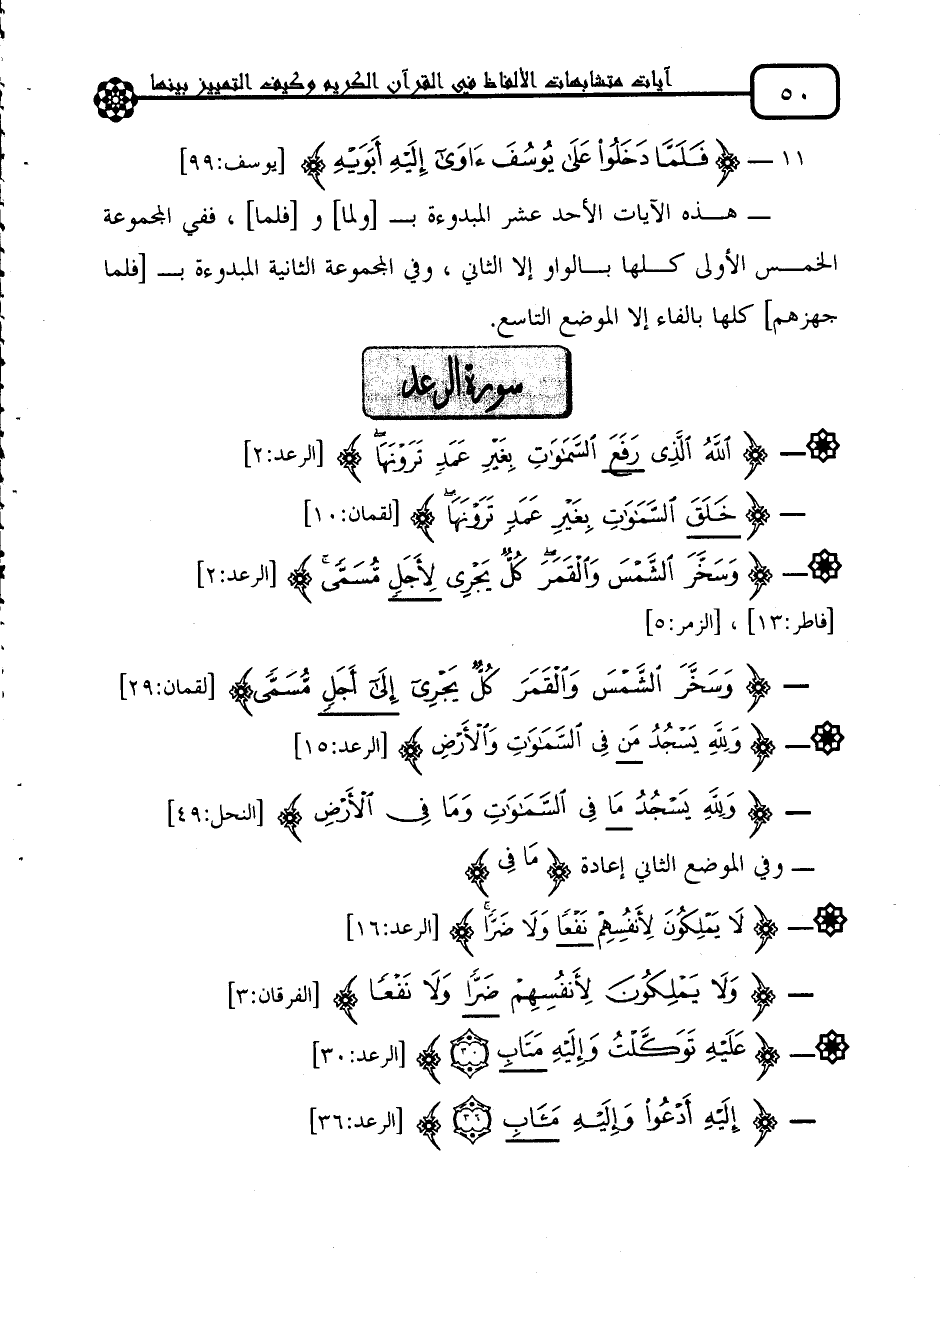 ٥٠
آيات متشابهات الألفاظ في القرآن الكريم وكيف التمييز بينها
١١ — ﴿ فَلَمَّا دَخَلُوا۟ عَلَىٰ يُوسُفَ ءَاوَىٰٓ إِلَيْهِ أَبَوَيْهِ ﴾ [يوسف:٩٩]
— هذه الآيات الأحد عشر المبدوءة بـ [ولما] و [فلما] ، ففي المجموعة
الخمس الأولى كلها بالواو إلا الثاني ، وفي المجموعة الثانية المبدوءة بـ [فلما
جهزهم] كلها بالفاء إلا الموضع التاسع.
سورة الرعد
— ﴿ ٱللَّهُ ٱلَّذِى رَفَعَ ٱلسَّمَـٰوَٰتِ بِغَيْرِ عَمَدٍ تَرَوْنَهَا ۖ ﴾ [الرعد:٢]
— ﴿ خَلَقَ ٱلسَّمَـٰوَٰتِ بِغَيْرِ عَمَدٍ تَرَوْنَهَا ۖ ﴾ [لقمان:١٠]
— ﴿ وَسَخَّرَ ٱلشَّمْسَ وَٱلْقَمَرَ ۖ كُلٌّ يَجْرِى لِأَجَلٍ مُّسَمًّى ۚ ﴾ [الرعد:٢]
[فاطر:١٣] ، [الزمر:٥]
— ﴿ وَسَخَّرَ ٱلشَّمْسَ وَٱلْقَمَرَ كُلٌّ يَجْرِىٓ إِلَىٰٓ أَجَلٍ مُّسَمًّى ﴾ [لقمان:٢٩]
— ﴿ وَلِلَّهِ يَسْجُدُ مَن فِى ٱلسَّمَـٰوَٰتِ وَٱلْأَرْضِ ﴾ [الرعد:١٥]
— ﴿ وَلِلَّهِ يَسْجُدُ مَا فِى ٱلسَّمَـٰوَٰتِ وَمَا فِى ٱلْأَرْضِ ﴾ [النحل:٤٩]
— وفي الموضع الثاني إعادة ﴿ مَا فِى ﴾
— ﴿ لَا يَمْلِكُونَ لِأَنفُسِهِمْ نَفْعًا وَلَا ضَرًّا ۚ ﴾ [الرعد:١٦]
— ﴿ وَلَا يَمْلِكُونَ لِأَنفُسِهِمْ ضَرًّا وَلَا نَفْعًا ﴾ [الفرقان:٣]
— ﴿ عَلَيْهِ تَوَكَّلْتُ وَإِلَيْهِ مَتَابِ ٣٠ ﴾ [الرعد:٣٠]
— ﴿ إِلَيْهِ أَدْعُوا۟ وَإِلَيْهِ مَـَٔابِ ٣٦ ﴾ [الرعد:٣٦]